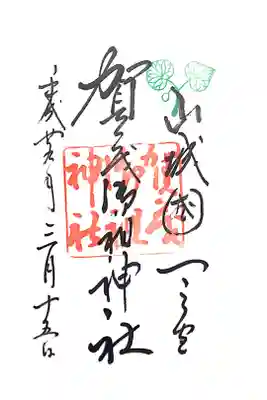 山城國一之宮
賀茂御祖神社
賀茂御祖神社
平成廿年月十五日